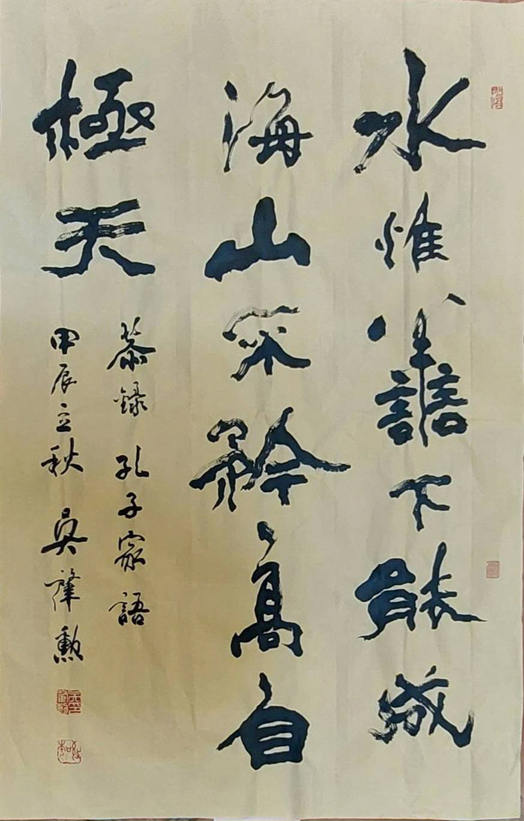 水惟譱下能成
海山不矜高自
極天
恭錄孔子家語
甲辰立秋 吳 勳